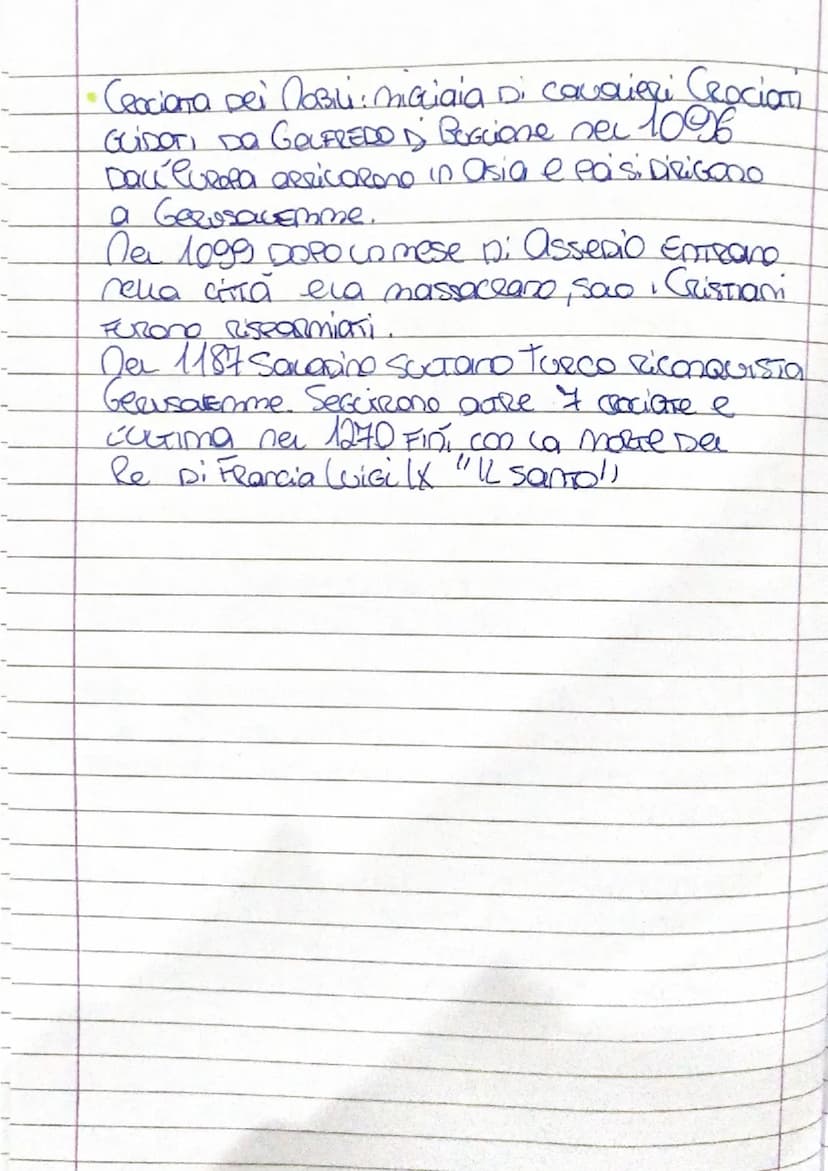 • Crociata dei Nobili: migliaia di cavalieri Crociati
guidati da Golfredo di Buglione nel 1096
dall'Europa arrivarono in Asia e poi si dirigano
a Gerusalemme.
Nel 1099 dopo un mese di assedio entrano
nella città e la massacrano, solo i Cristiani
furono risparmiati.
Nel 1187 Saladino sultano turco riconquista
Gerusalemme. Seguirono altre 7 crociate e
l'ultima nel 1270 finì con la morte del
Re di Francia Luigi IX "Il santo"